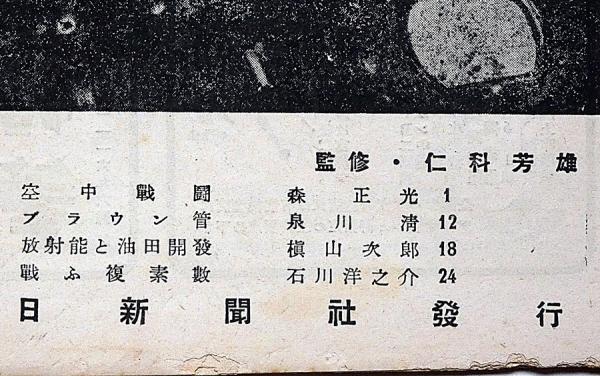 監修・仁科芳雄
空中戰鬪 森正光 1
ブラウン管 泉川淸 12
放射能と油田開發 槇山次郎 18
戰ふ複素數 石川洋之介 24
日新聞社發行